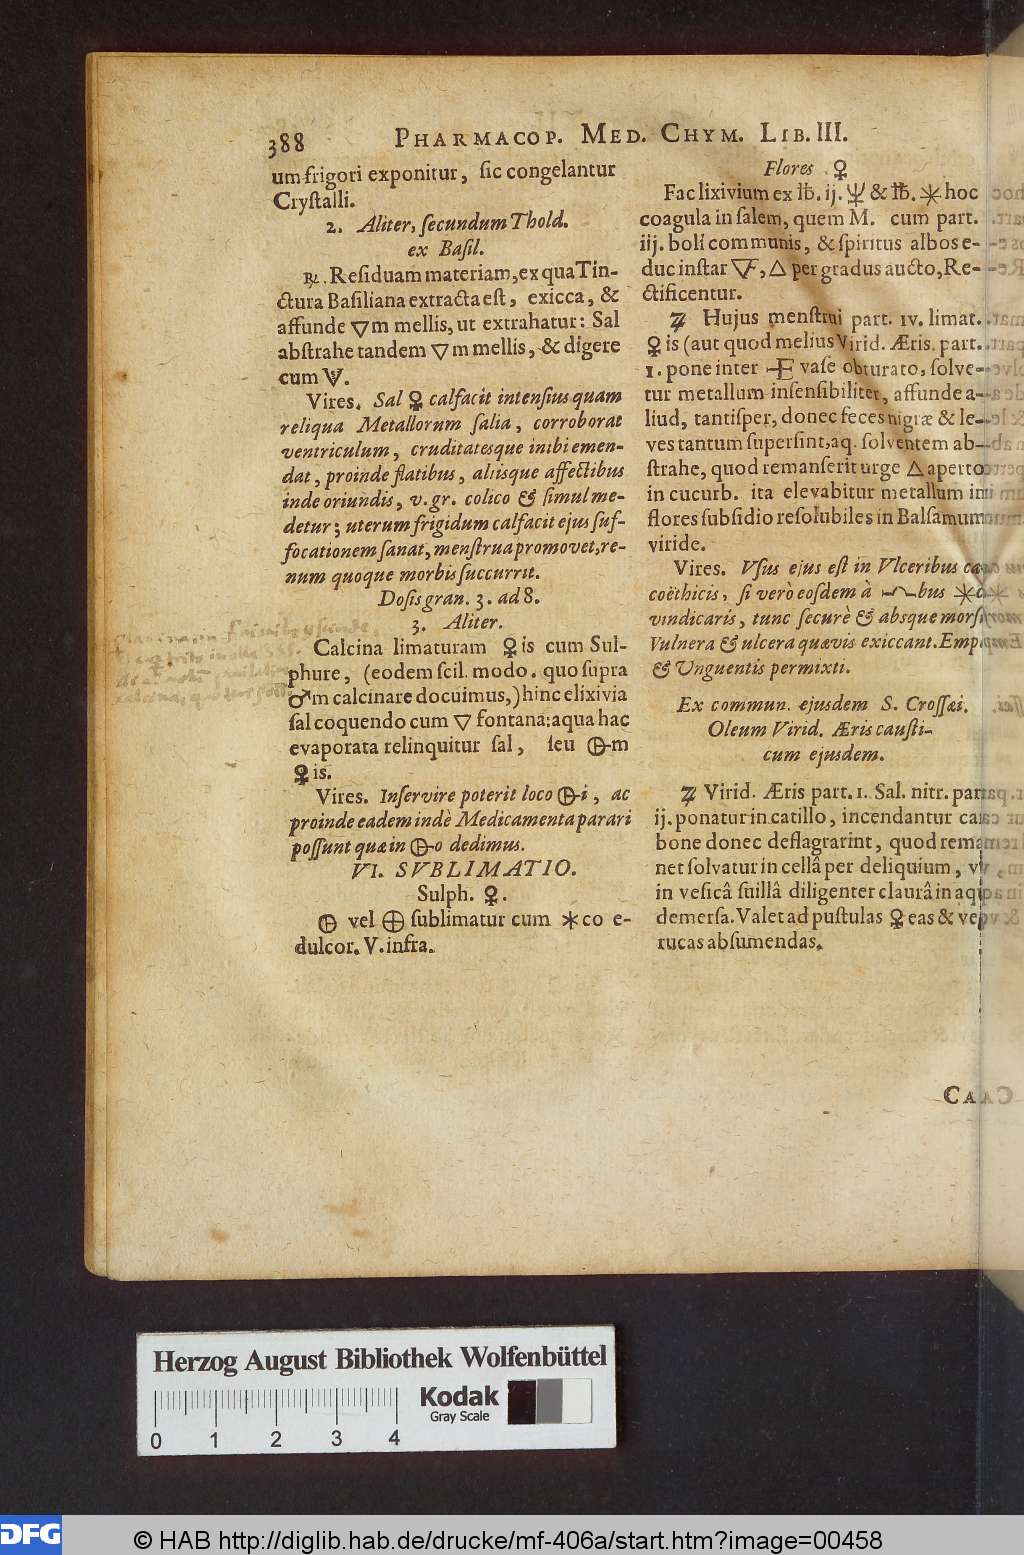 388 PHARMACOP. MED. CHYM. LIB. III.
um frigori exponitur, ſic congelantur
Cryſtalli.
2. Aliter, ſecundum Thold.
ex Baſil.
℞. Reſiduam materiam, ex qua Tin-
ctura Baſiliana extracta eſt, exicca, &
affunde 🜄m mellis, ut extrahatur: Sal
abſtrahe tandem 🜄m mellis, & digere
cum .
Vires. Sal ♀ calfacit intenſius quam
reliqua Metallorum ſalia, corroborat
ventriculum, cruditatesque inibi emen-
dat, proinde flatibus, aliisque affectibus
inde oriundis, v. gr. colico & ſimul me-
detur; uterum frigidum calfacit ejus ſuf-
focationem ſanat, menſtrua promovet, re-
num quoque morbis ſuccurrit.
Doſis gran. 3. ad 8.
3. Aliter.
Calcina limaturam ♀is cum Sul-
phure, (eodem ſcil. modo. quo ſupra
♂m calcinare docuimus,) hinc elixivia
ſal coquendo cum 🜄 fontana: aqua hac
evaporata relinquitur ſal, ſeu 🜖m
♀is.
Vires. Inſervire poterit loco 🜖i, ac
proinde eadem indè Medicamenta parari
poſſunt quæ in 🜖o dedimus.
VI. SVBLIMATIO.
Sulph. ♀.
🜕 vel 🜨 ſublimatur cum ✶co e-
dulcor. V. infra.
Flores ♀
Fac lixivium ex ℔. ij. 🜿 & ℔. ✶ hoc
coagula in ſalem, quem M. cum part.
iij. boli communis, & ſpiritus albos e-
duc inſtar 🜅, 🜂 per gradus aucto, Re-
ctificentur.
♃ Hujus menſtrui part. IV. limat.
♀is (aut quod melius Virid. Æris. part.
1. pone inter vaſe obturato, ſolve-
tur metallum inſenſibiliter, affunde a-
liud, tantiſper, donec feces nigræ & le-
ves tantum ſuperſint, aq. ſolventem ab-
ſtrahe, quod remanſerit urge 🜂 aperto
in cucurb. ita elevabitur metallum in
flores ſubſidio reſolubiles in Balſamum
viride.
Vires. Vſus ejus eſt in Vlceribus ca-
coëthicis, ſi verò eosdem à bus ✶
vindicaris, tunc ſecurè & absque morſ
Vulnera & ulcera quævis exiccant. Emp
& Unguentis permixti.
Ex commun. ejusdem S. Croſſæi.
Oleum Virid. Æris cauſti-
cum ejusdem.
♃ Virid. Æris part. 1. Sal. nitr. part.
ij. ponatur in catillo, incendantur car
bone donec deflagrarint, quod rema
net ſolvatur in cellâ per deliquium,
in veſicâ ſuillâ diligenter clauſâ in aq
demerſa. Valet ad puſtulas ♀eas & ver
rucas abſumendas.
CA
Herzog August Bibliothek Wolfenbüttel
Kodak
Gray Scale
0 1 2 3 4
DFG © HAB http://diglib.hab.de/drucke/mf-406a/start.htm?image=00458